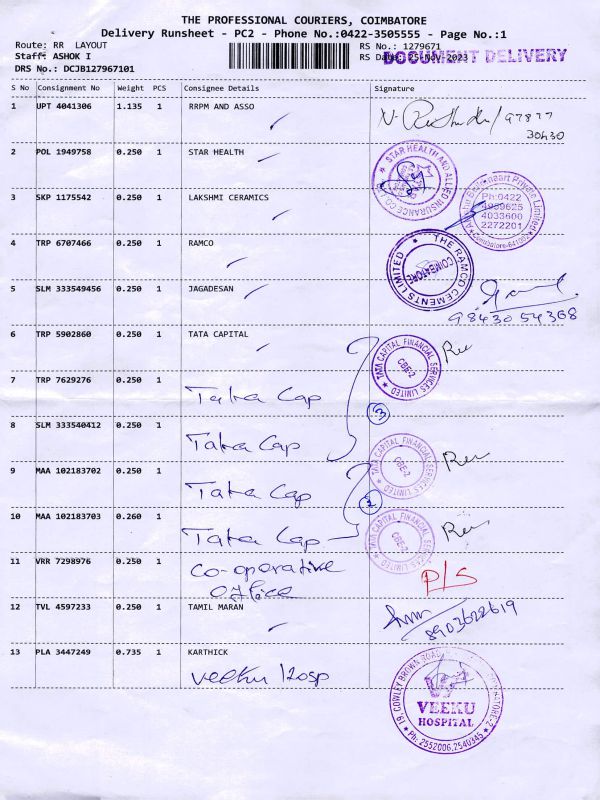 THE PROFESSIONAL COURIERS, COIMBATORE
Delivery Runsheet - PC2 - Phone No.:0422-3505555 - Page No.:1
Route: RR LAYOUT
RS No.: 1279671
Staff: ASHOK I
RS Date: 25-Nov-2023
DOCUMENT DELIVERY
DRS No.: DCJB127967101
S No Consignment No Weight PCS Consignee Details Signature
1 UPT 4041306 1.135 1 RRPM AND ASSO
97877
30430
2 POL 1949758 0.250 1 STAR HEALTH
STAR HEALTH AND ALLIED INSURANCE CO.
3 SKP 1175542 0.250 1 LAKSHMI CERAMICS
Private Limited
Ph:0422
4959625
4033600
2272201
Coimbatore-641
4 TRP 6707466 0.250 1 RAMCO
THE RAMCO CEMENTS LIMITED
COIMBATORE
5 SLM 333549456 0.250 1 JAGADESAN
9843054368
6 TRP 5902860 0.250 1 TATA CAPITAL
TATA CAPITAL FINANCIAL SERVICES LIMITED
CBE-2
7 TRP 7629276 0.250 1 Tata Cap
3
8 SLM 333540412 0.250 1 Tata Cap
TATA CAPITAL FINANCIAL SERVICES LIMITED
CBE-2
9 MAA 102183702 0.250 1 Tata Cap
10 MAA 102183703 0.260 1 Tata Cap
TATA CAPITAL FINANCIAL SERVICES LIMITED
CBE-2
11 VRR 7298976 0.250 1 Co-operative
office
P/S
12 TVL 4597233 0.250 1 TAMIL MARAN
8903622619
13 PLA 3447249 0.735 1 KARTHICK
Veeku Hosp
19, COWLEY BROWN ROAD
VEEKU
HOSPITAL
Ph: 2552006,2540345